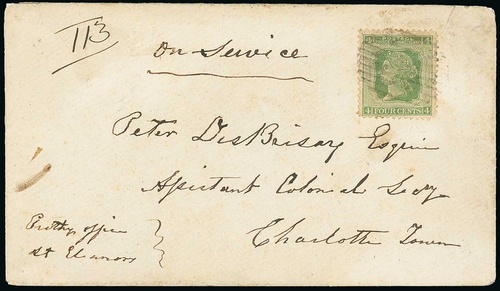 113
On Service
4 4
4 FOUR CENTS 4
Peter DesBrisay Esquire
Assistant Colonial Secy
Charlotte Town
Prothys office
St Eleanors